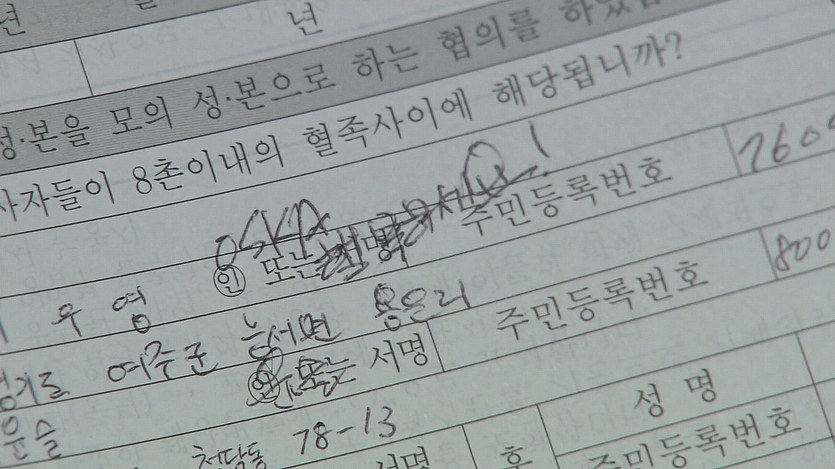 년
년
성·본을 모의 성·본으로 하는 협의를 하였
사자들이 8촌이내의 혈족사이에 해당됩니까?
우영 ㊞ 또는 서명 주민등록번호 7600
여주군 능서면 용은리
윤슬 ㊞ 또는 서명 주민등록번호 800
청담동 78-13
서명 후 성 명
주민등록번호